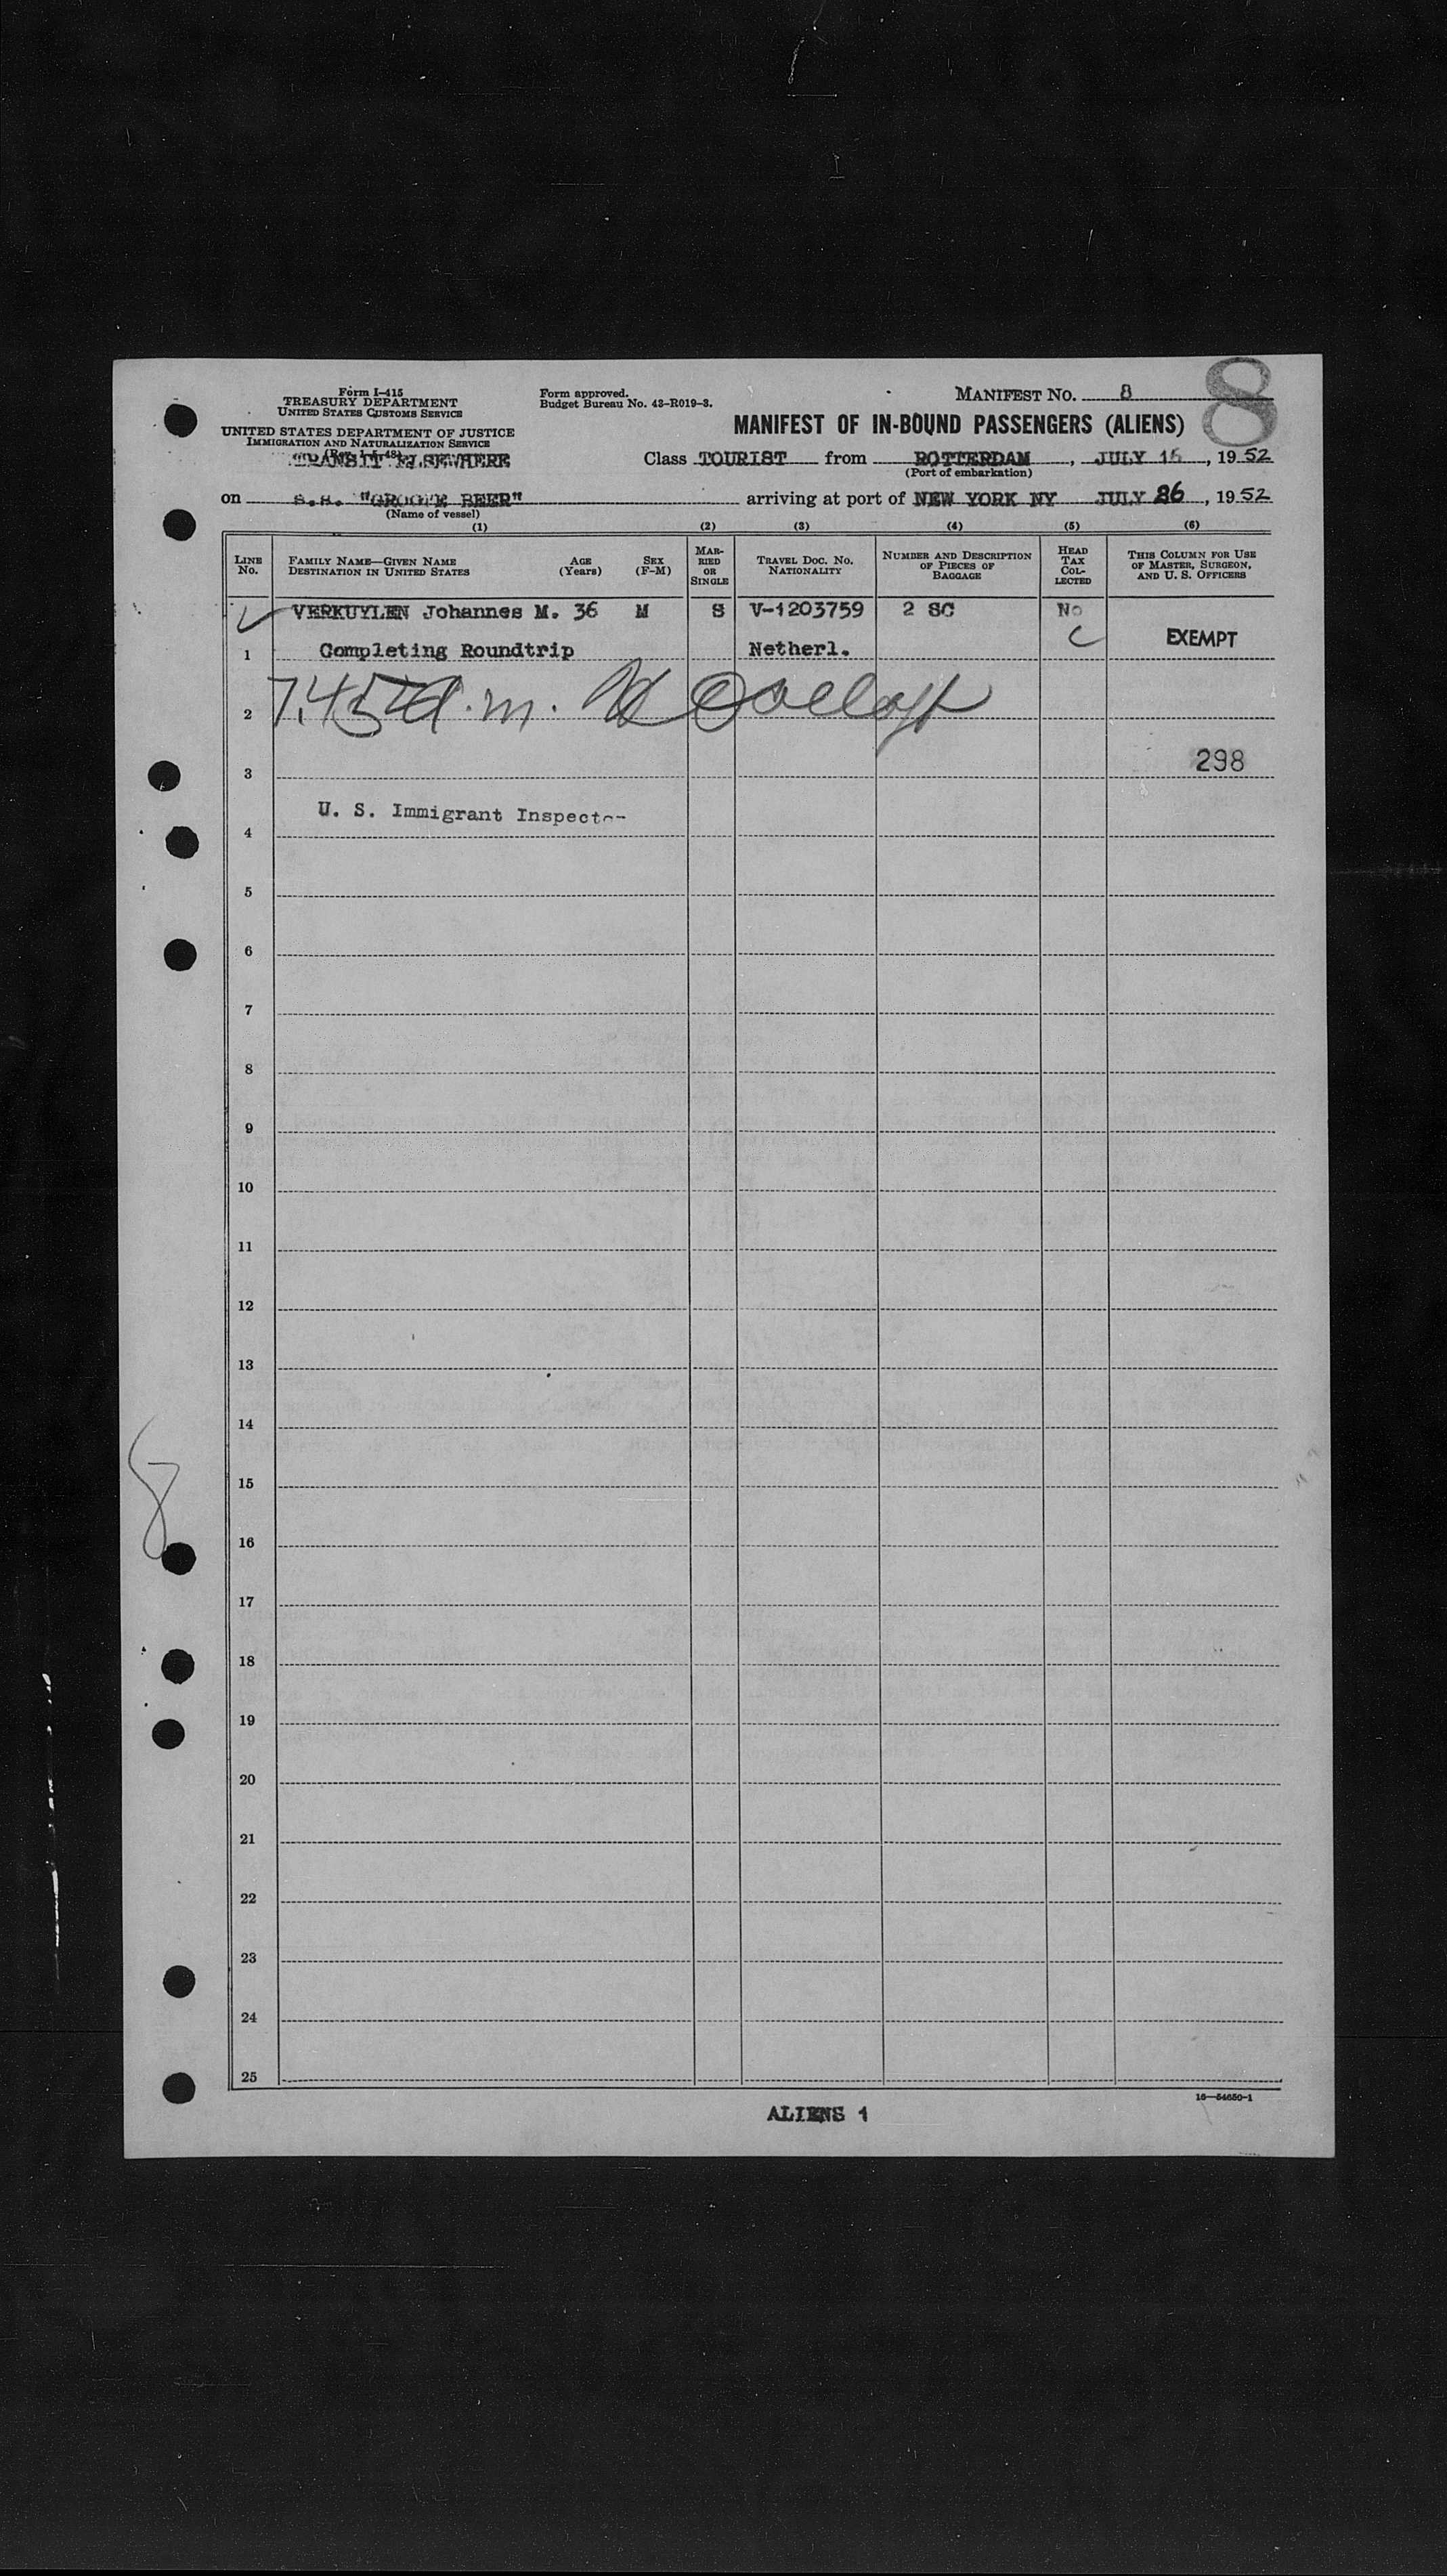 Form I-415
TREASURY DEPARTMENT
UNITED STATES CUSTOMS SERVICE
UNITED STATES DEPARTMENT OF JUSTICE
IMMIGRATION AND NATURALIZATION SERVICE
TRANSIT ELSEWHERE
Form approved.
Budget Bureau No. 43-R019-3.
MANIFEST NO. 8
8
MANIFEST OF IN-BOUND PASSENGERS (ALIENS)
Class TOURIST from ROTTERDAM, JULY 16, 1952
(Port of embarkation)
on S.S. "GROOTE BEER" arriving at port of NEW YORK NY JULY 26, 1952
(Name of vessel)
(1) (2) (3) (4) (5) (6)
LINE NO.
FAMILY NAME—GIVEN NAME
DESTINATION IN UNITED STATES
AGE (Years)
SEX (F-M)
MARRIED OR SINGLE
TRAVEL DOC. NO.
NATIONALITY
NUMBER AND DESCRIPTION OF PIECES OF BAGGAGE
HEAD TAX COLLECTED
THIS COLUMN FOR USE OF MASTER, SURGEON, AND U. S. OFFICERS
VERKUYLEN Johannes M. 36 M S V-1203759 2 SC No
1 Completing Roundtrip Netherl. C EXEMPT
7.45 a.m.
2
298
3
U. S. Immigrant Inspector
4
5
6
7
8
9
10
11
12
13
14
8
15
16
17
18
19
20
21
22
23
24
25
16—54650-1
ALIENS 1